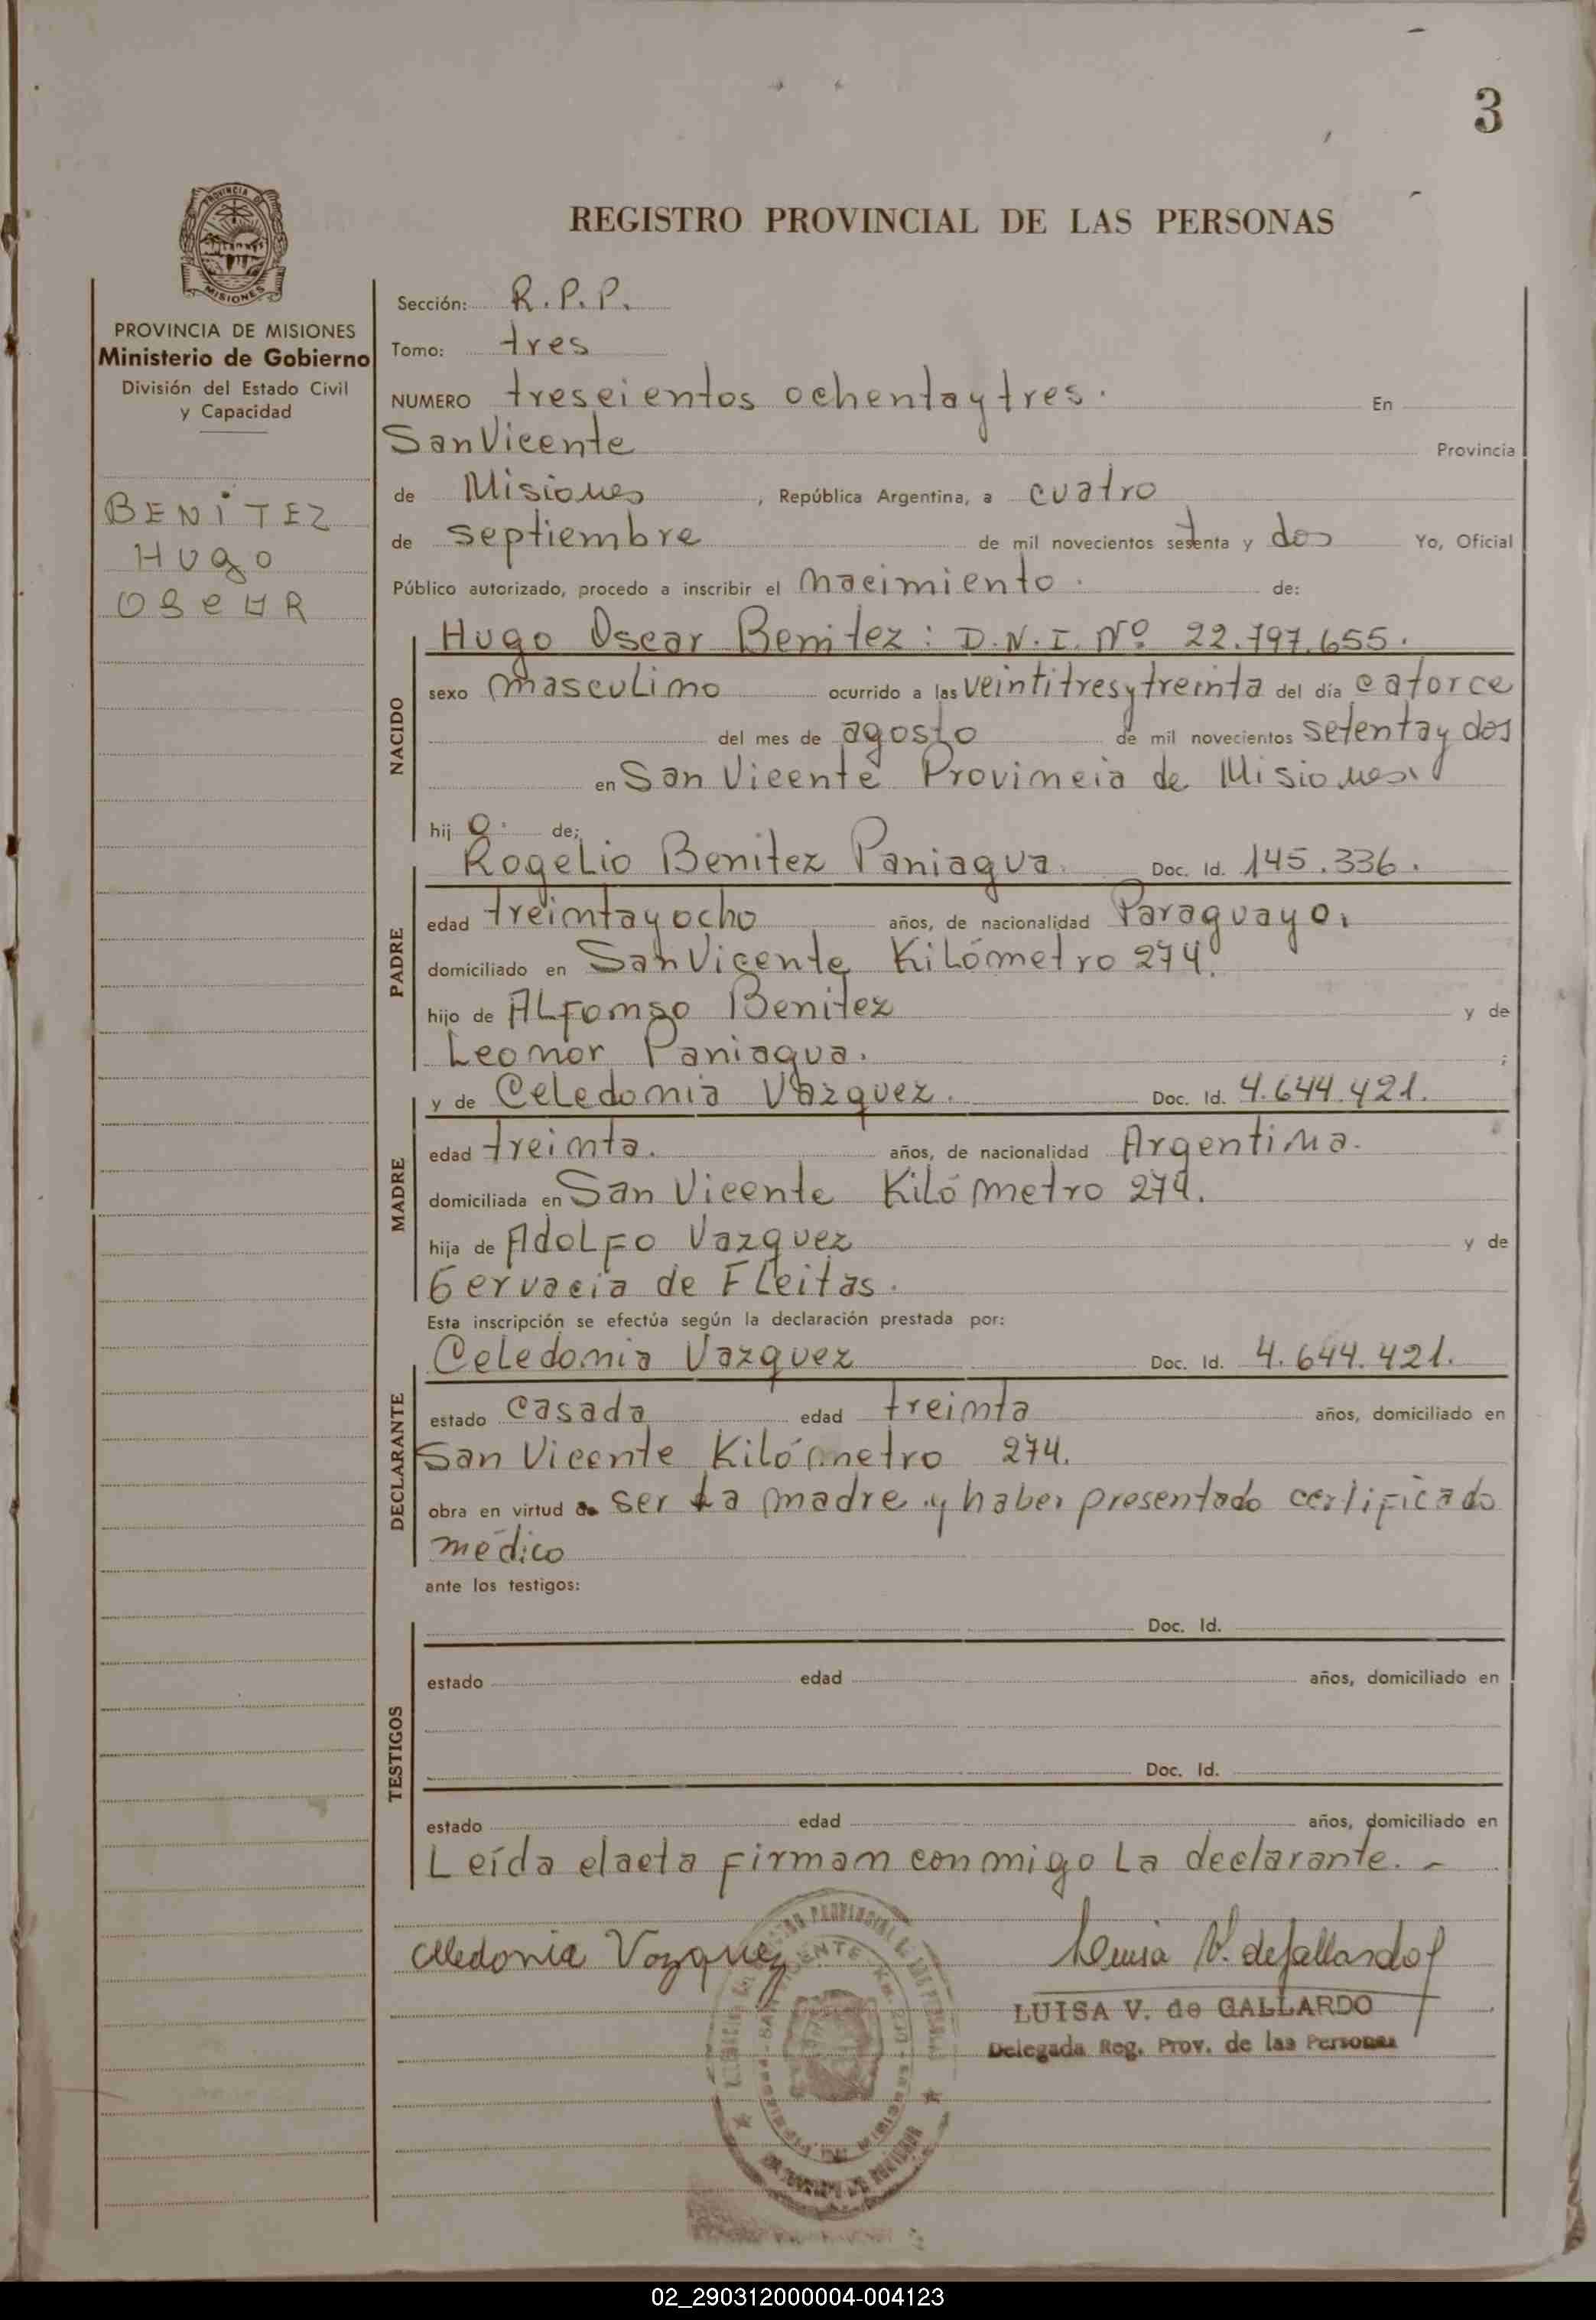 3
REGISTRO PROVINCIAL DE LAS PERSONAS
PROVINCIA DE
MISIONES
PROVINCIA DE MISIONES
Ministerio de Gobierno
División del Estado Civil
y Capacidad
BENITEZ
HUgo
OSCAR
Sección: R.P.P.
Tomo: tres
NUMERO trescientos ochenta y tres. En
San Vicente Provincia
de Misiones, República Argentina, a cuatro
de septiembre de mil novecientos setenta y dos Yo, Oficial
Público autorizado, procedo a inscribir el nacimiento. de:
Hugo Oscar Benitez: D.N.I. Nº 22.797.655.
NACIDO
sexo masculino ocurrido a las veintitres y treinta del día catorce
del mes de agosto de mil novecientos setenta y dos
en San Vicente Provincia de Misiones.
hij o. de:
PADRE
Rogelio Benitez Paniagua. Doc. Id. 145.336.
edad treinta y ocho años, de nacionalidad Paraguayo.
domiciliado en San Vicente Kilómetro 274.
hijo de Alfonso Benitez y de
Leonor Paniagua. ;
MADRE
y de Celedonia Vazquez. Doc. Id. 4.644.421.
edad treinta. años, de nacionalidad Argentina.
domiciliada en San Vicente Kilómetro 274.
hija de Adolfo Vazquez y de
Gervacia de Fleitas.
Esta inscripción se efectúa según la declaración prestada por:
DECLARANTE
Celedonia Vazquez Doc. Id. 4.644.421.
estado casada edad treinta años, domiciliado en
San Vicente Kilómetro 274.
obra en virtud de ser la madre y haber presentado certificado
médico
ante los testigos:
TESTIGOS
Doc. Id.
estado edad años, domiciliado en
Doc. Id.
estado edad años, domiciliado en
Leída el acta firman conmigo la declarante. -
Celedonia Vazquez
Luisa V. de Gallardo
LUISA V. de GALLARDO
Delegada Reg. Prov. de las Personas
02_290312000004-004123